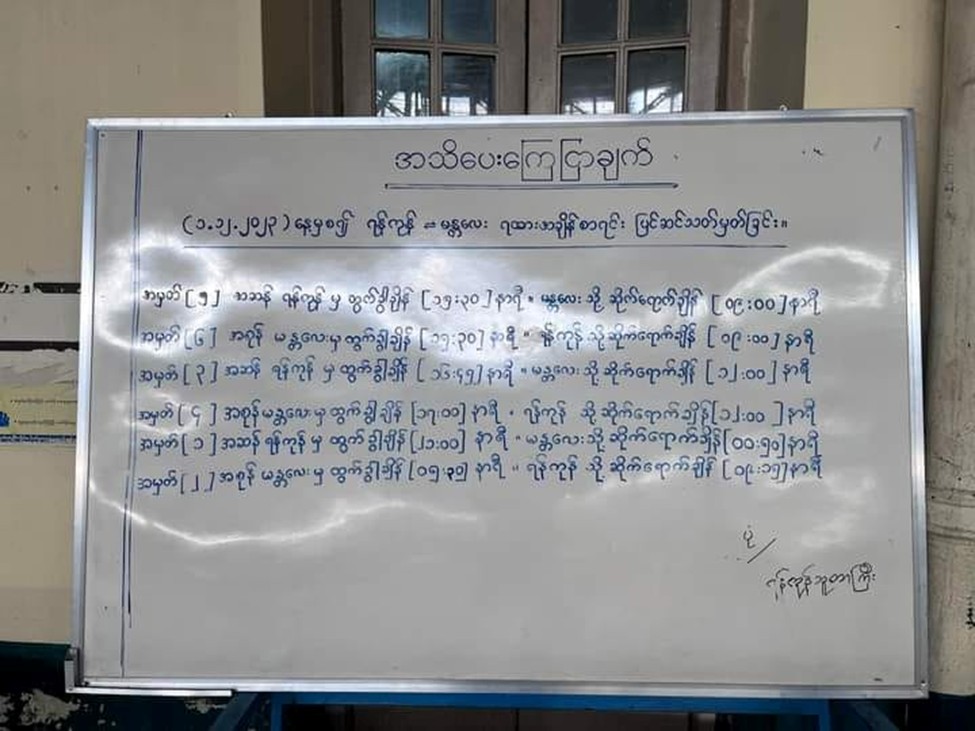 အသိပေးကြေငြာချက်
(၁.၁၂.၂၀၂၃) နေ့မှစ၍ ရန်ကုန် ⇌ မန္တလေး ရထားအချိန်စာရင်း ပြင်ဆင်သတ်မှတ်ခြင်း။
အမှတ် [၅] အဆန် ရန်ကုန် မှ ထွက်ခွါချိန် [၁၅:၃၀] နာရီ ။ မန္တလေး သို့ ဆိုက်ရောက်ချိန် [၀၉:၀၀] နာရီ
အမှတ် [၆] အစုန် မန္တလေး မှ ထွက်ခွါချိန် [၁၅:၃၀] နာရီ ။ ရန်ကုန် သို့ ဆိုက်ရောက်ချိန် [၀၉:၀၀] နာရီ
အမှတ် [၃] အဆန် ရန်ကုန် မှ ထွက်ခွါချိန် [၁၆:၄၅] နာရီ ။ မန္တလေး သို့ ဆိုက်ရောက်ချိန် [၁၂:၀၀] နာရီ
အမှတ် [၄] အစုန် မန္တလေး မှ ထွက်ခွါချိန် [၁၇:၀၀] နာရီ ။ ရန်ကုန် သို့ ဆိုက်ရောက်ချိန် [၁၂:၀၀] နာရီ
အမှတ် [၁] အဆန် ရန်ကုန် မှ ထွက်ခွါချိန် [၂၁:၀၀] နာရီ ။ မန္တလေး သို့ ဆိုက်ရောက်ချိန် [၀၀:၅၀] နာရီ
အမှတ် [၂] အစုန် မန္တလေး မှ ထွက်ခွါချိန် [၀၅:၃၀] နာရီ ။ ရန်ကုန် သို့ ဆိုက်ရောက်ချိန် [၀၉:၁၅] နာရီ
ပုံ/
ရန်ကုန်ဘူတာကြီး